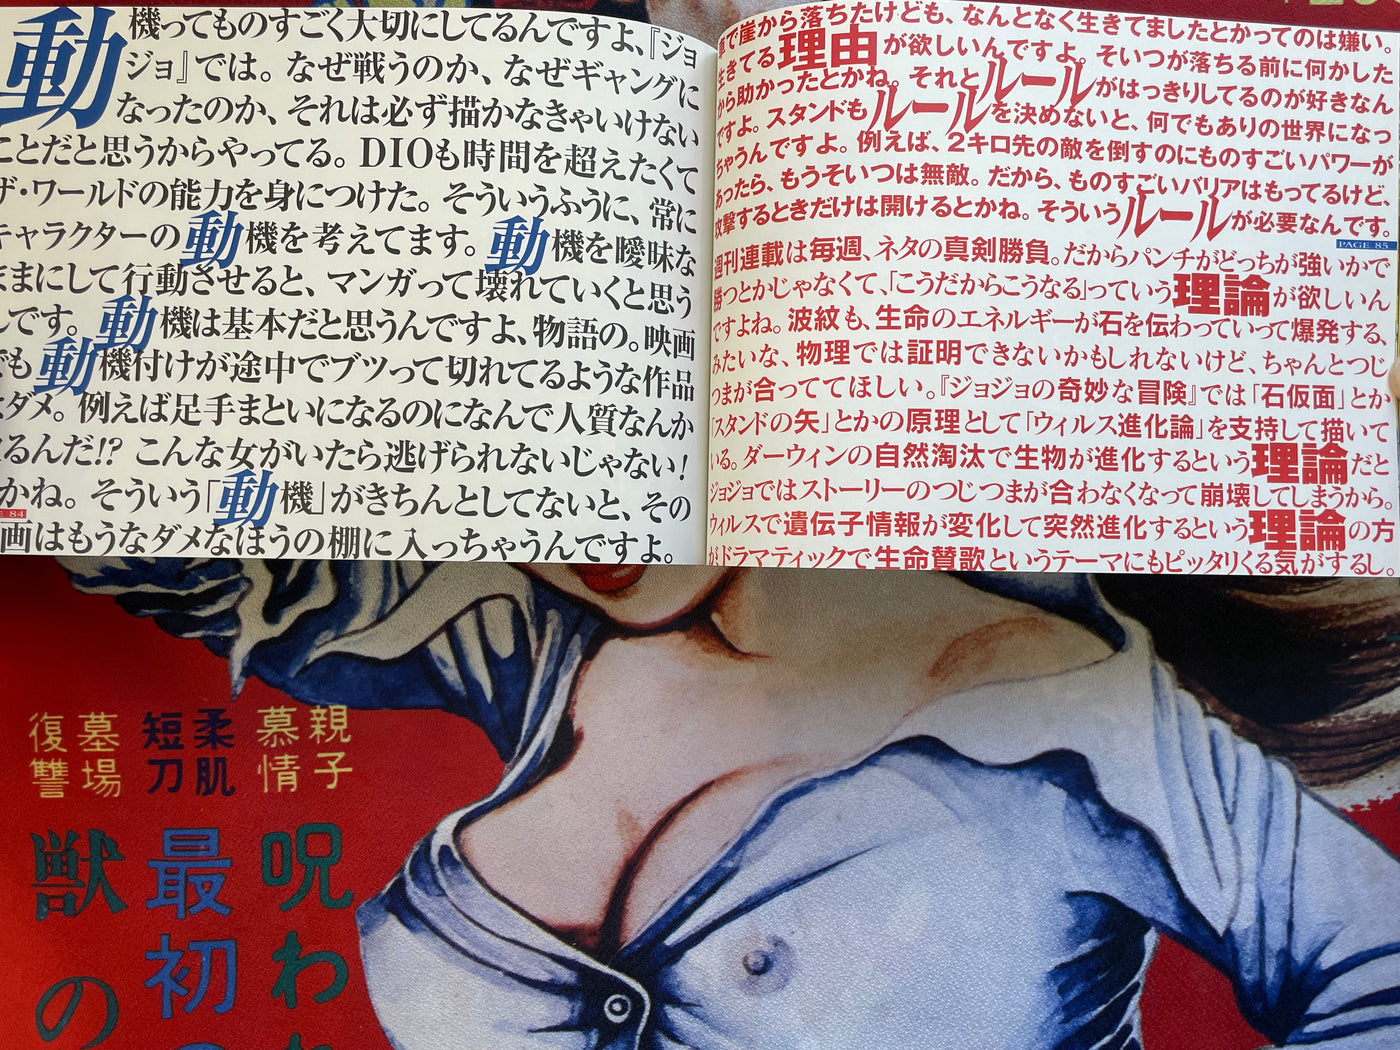 動機ってものすごく大切にしてるんですよ、『ジョ
ジョ』では。なぜ戦うのか、なぜギャングに
なったのか、それは必ず描かなきゃいけない
ことだと思うからやってる。DIOも時間を超えたくて
ザ・ワールドの能力を身につけた。そういうふうに、常に
キャラクターの動機を考えてます。動機を曖昧な
ままにして行動させると、マンガって壊れていくと思う
んです。動機は基本だと思うんですよ、物語の。映画
でも動機付けが途中でブツって切れてるような作品
はダメ。例えば足手まといになるのになんで人質なんか
とるんだ!? こんな女がいたら逃げられないじゃない!
とかね。そういう「動機」がきちんとしてないと、その
84
画はもうなダメなほうの棚に入っちゃうんですよ。
車で崖から落ちたけども、なんとなく生きてましたとかってのは嫌い。
生きてる理由が欲しいんですよ。そいつが落ちる前に何かした
から助かったとかね。それとルールがはっきりしてるのが好きなん
ですよ。スタンドもルールを決めないと、何でもありの世界になっ
ちゃうんですよ。例えば、2キロ先の敵を倒すのにものすごいパワーが
あったら、もうそいつは無敵。だから、ものすごいバリアはもってるけど、
攻撃するときだけは開けるとかね。そういうルールが必要なんです。
PAGE 85
週刊連載は毎週、ネタの真剣勝負。だからパンチがどっちが強いかで
勝つとかじゃなくて、「こうだからこうなる」っていう理論が欲しいん
ですよね。波紋も、生命のエネルギーが石を伝わっていって爆発する、
みたいな、物理では証明できないかもしれないけど、ちゃんとつじ
つまが合っててほしい。『ジョジョの奇妙な冒険』では「石仮面」とか
「スタンドの矢」とかの原理として「ウィルス進化論」を支持して描いて
いる。ダーウィンの自然淘汰で生物が進化するという理論だと
ジョジョではストーリーのつじつまが合わなくなって崩壊してしまうから。
ウィルスで遺伝子情報が変化して突然進化するという理論の方
がドラマティックで生命賛歌というテーマにもピッタリくる気がするし。
親子
慕情
柔肌
短刀
墓場
復讐
呪わ
最初
獣の